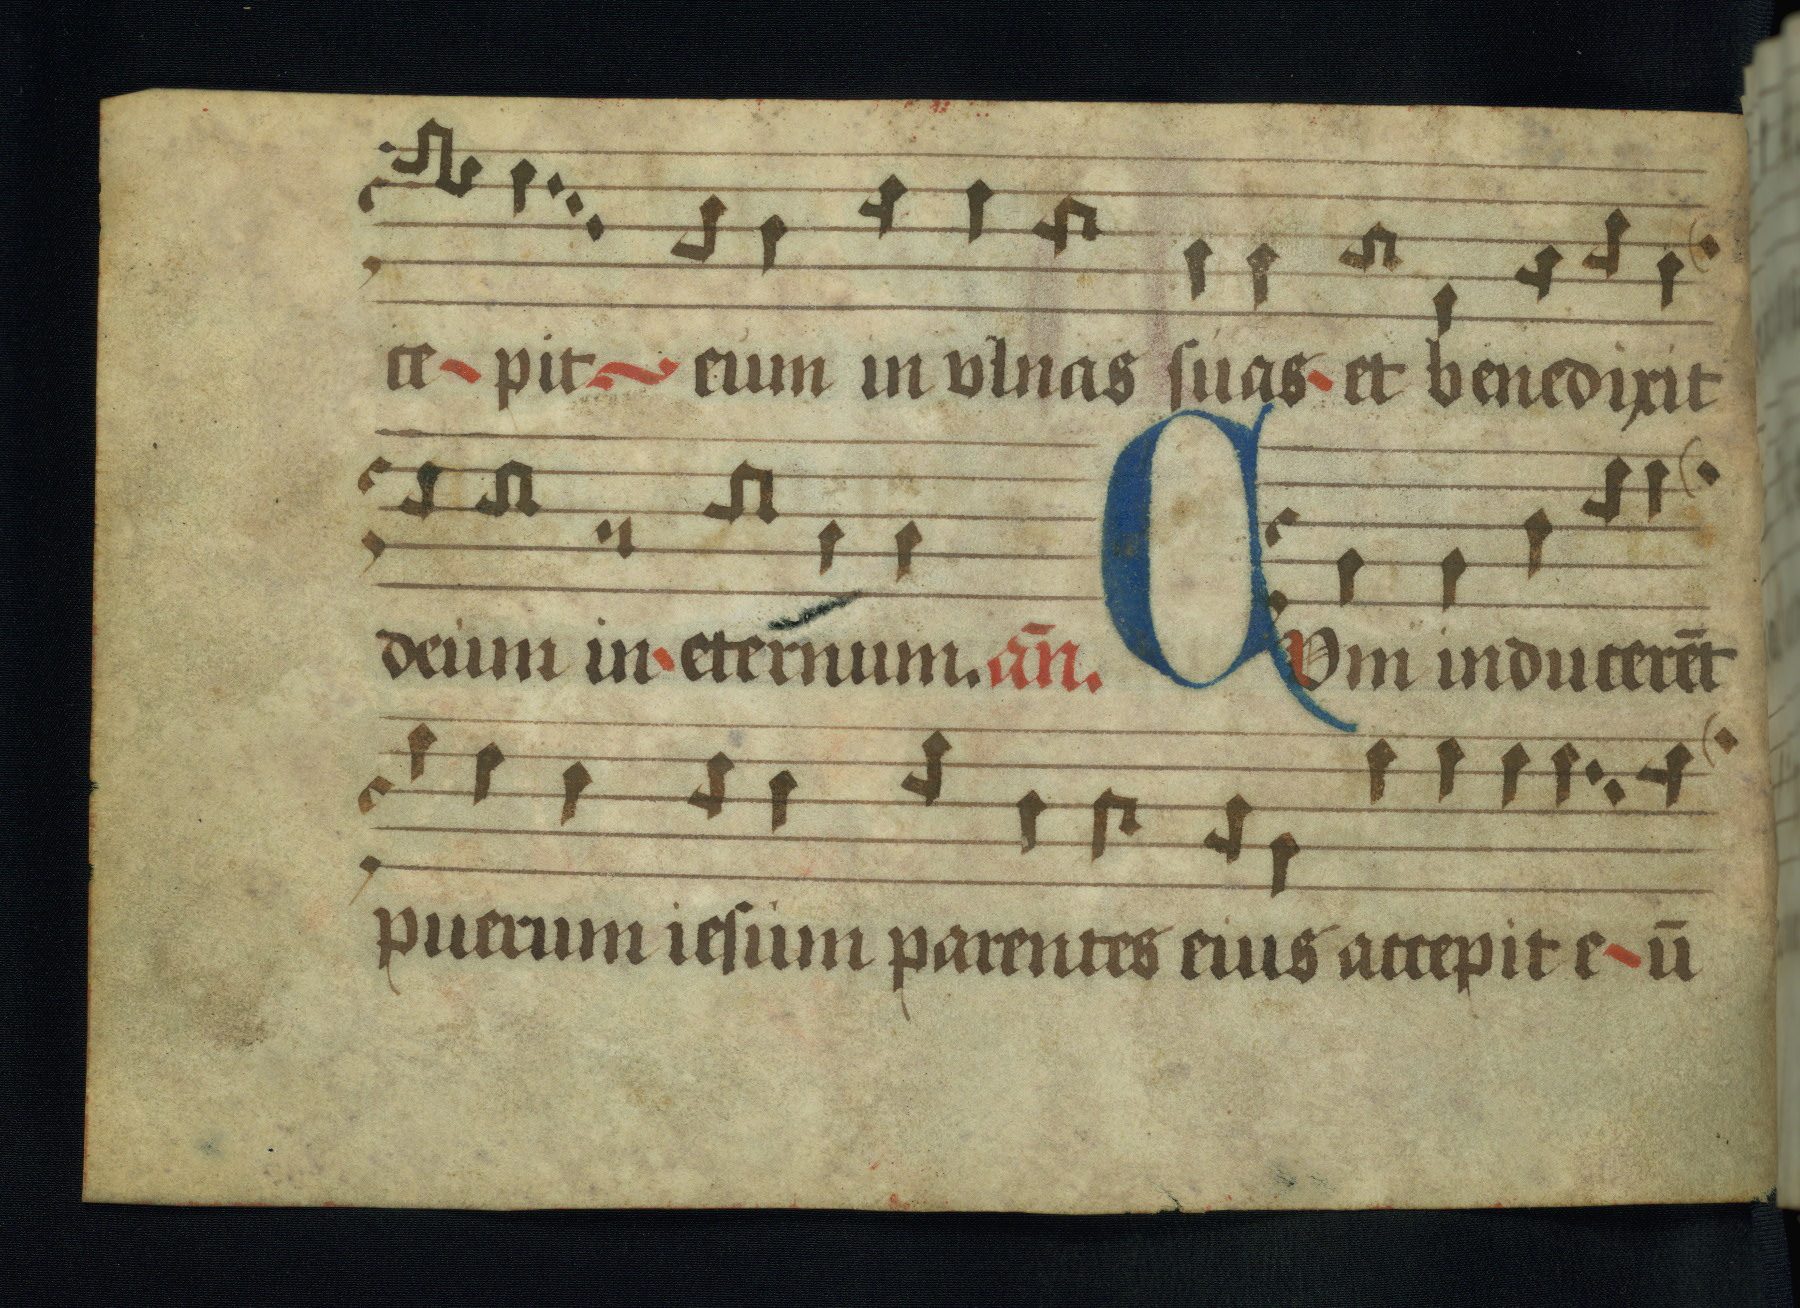 ce pit eium in vlnas suas et benedixit
deium in eternum. an̄. C Vm inducerēt
puerum iesum parentes eius accepit e ū